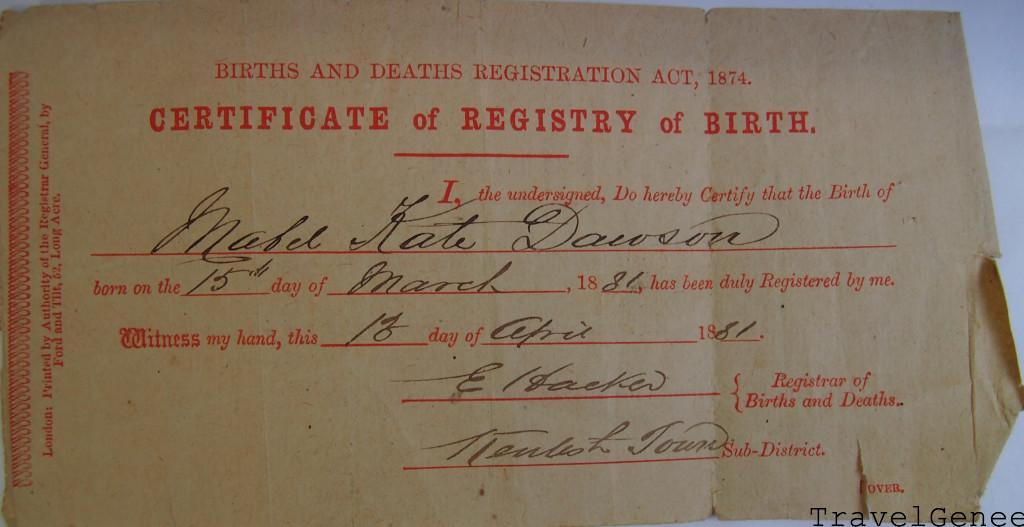 BIRTHS AND DEATHS REGISTRATION ACT, 1874.
CERTIFICATE of REGISTRY of BIRTH.
I, the undersigned, Do hereby Certify that the Birth of
Mabel Kate Dawson
born on the 15th day of March, 1881, has been duly Registered by me.
Witness my hand, this day of April 1881.
E Hacker Registrar of
Births and Deaths.
Kentish Town Sub-District.
OVER.
London: Printed by Authority of the Registrar General, by
Ford and Tilt, 52, Long Acre.
TravelGenee